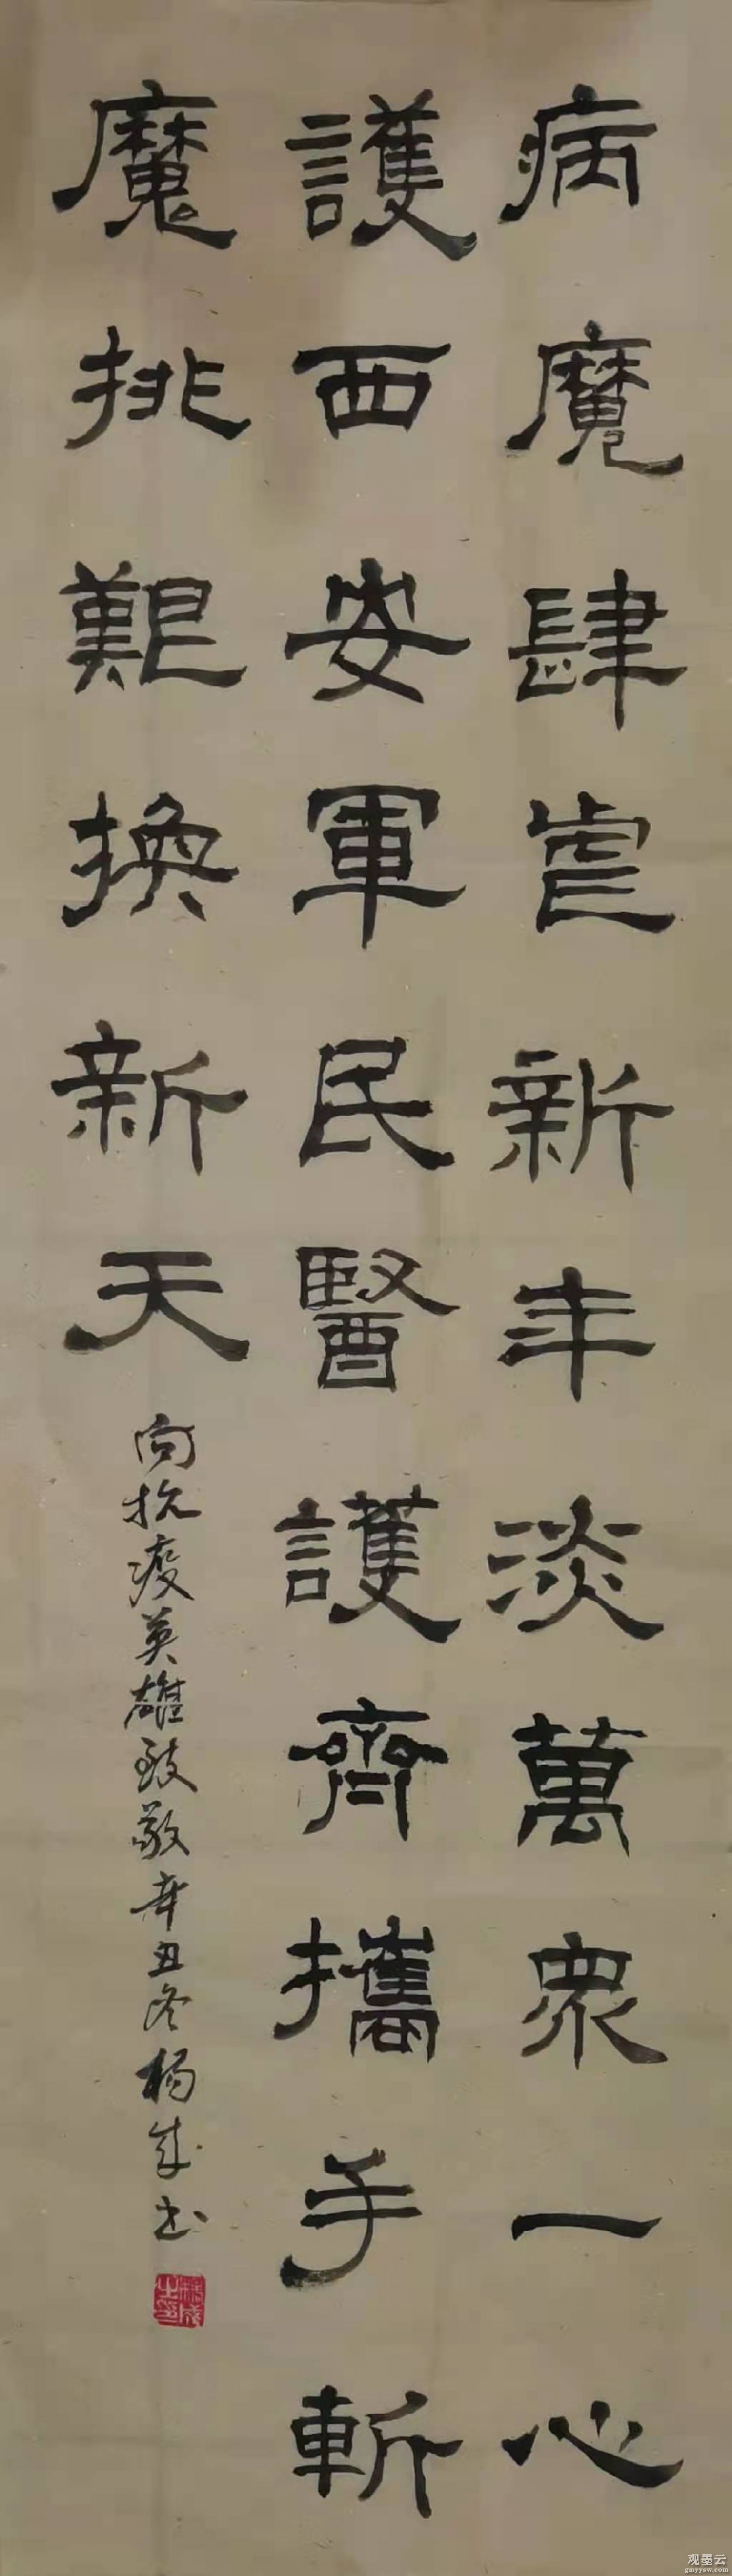 病魔肆虐新年淡萬衆一心
護西安軍民醫護齊攜手斬
魔排艱換新天
向抗疫英雄致敬辛丑冬楊成书
楊成之印
观墨云
gmyysw.com